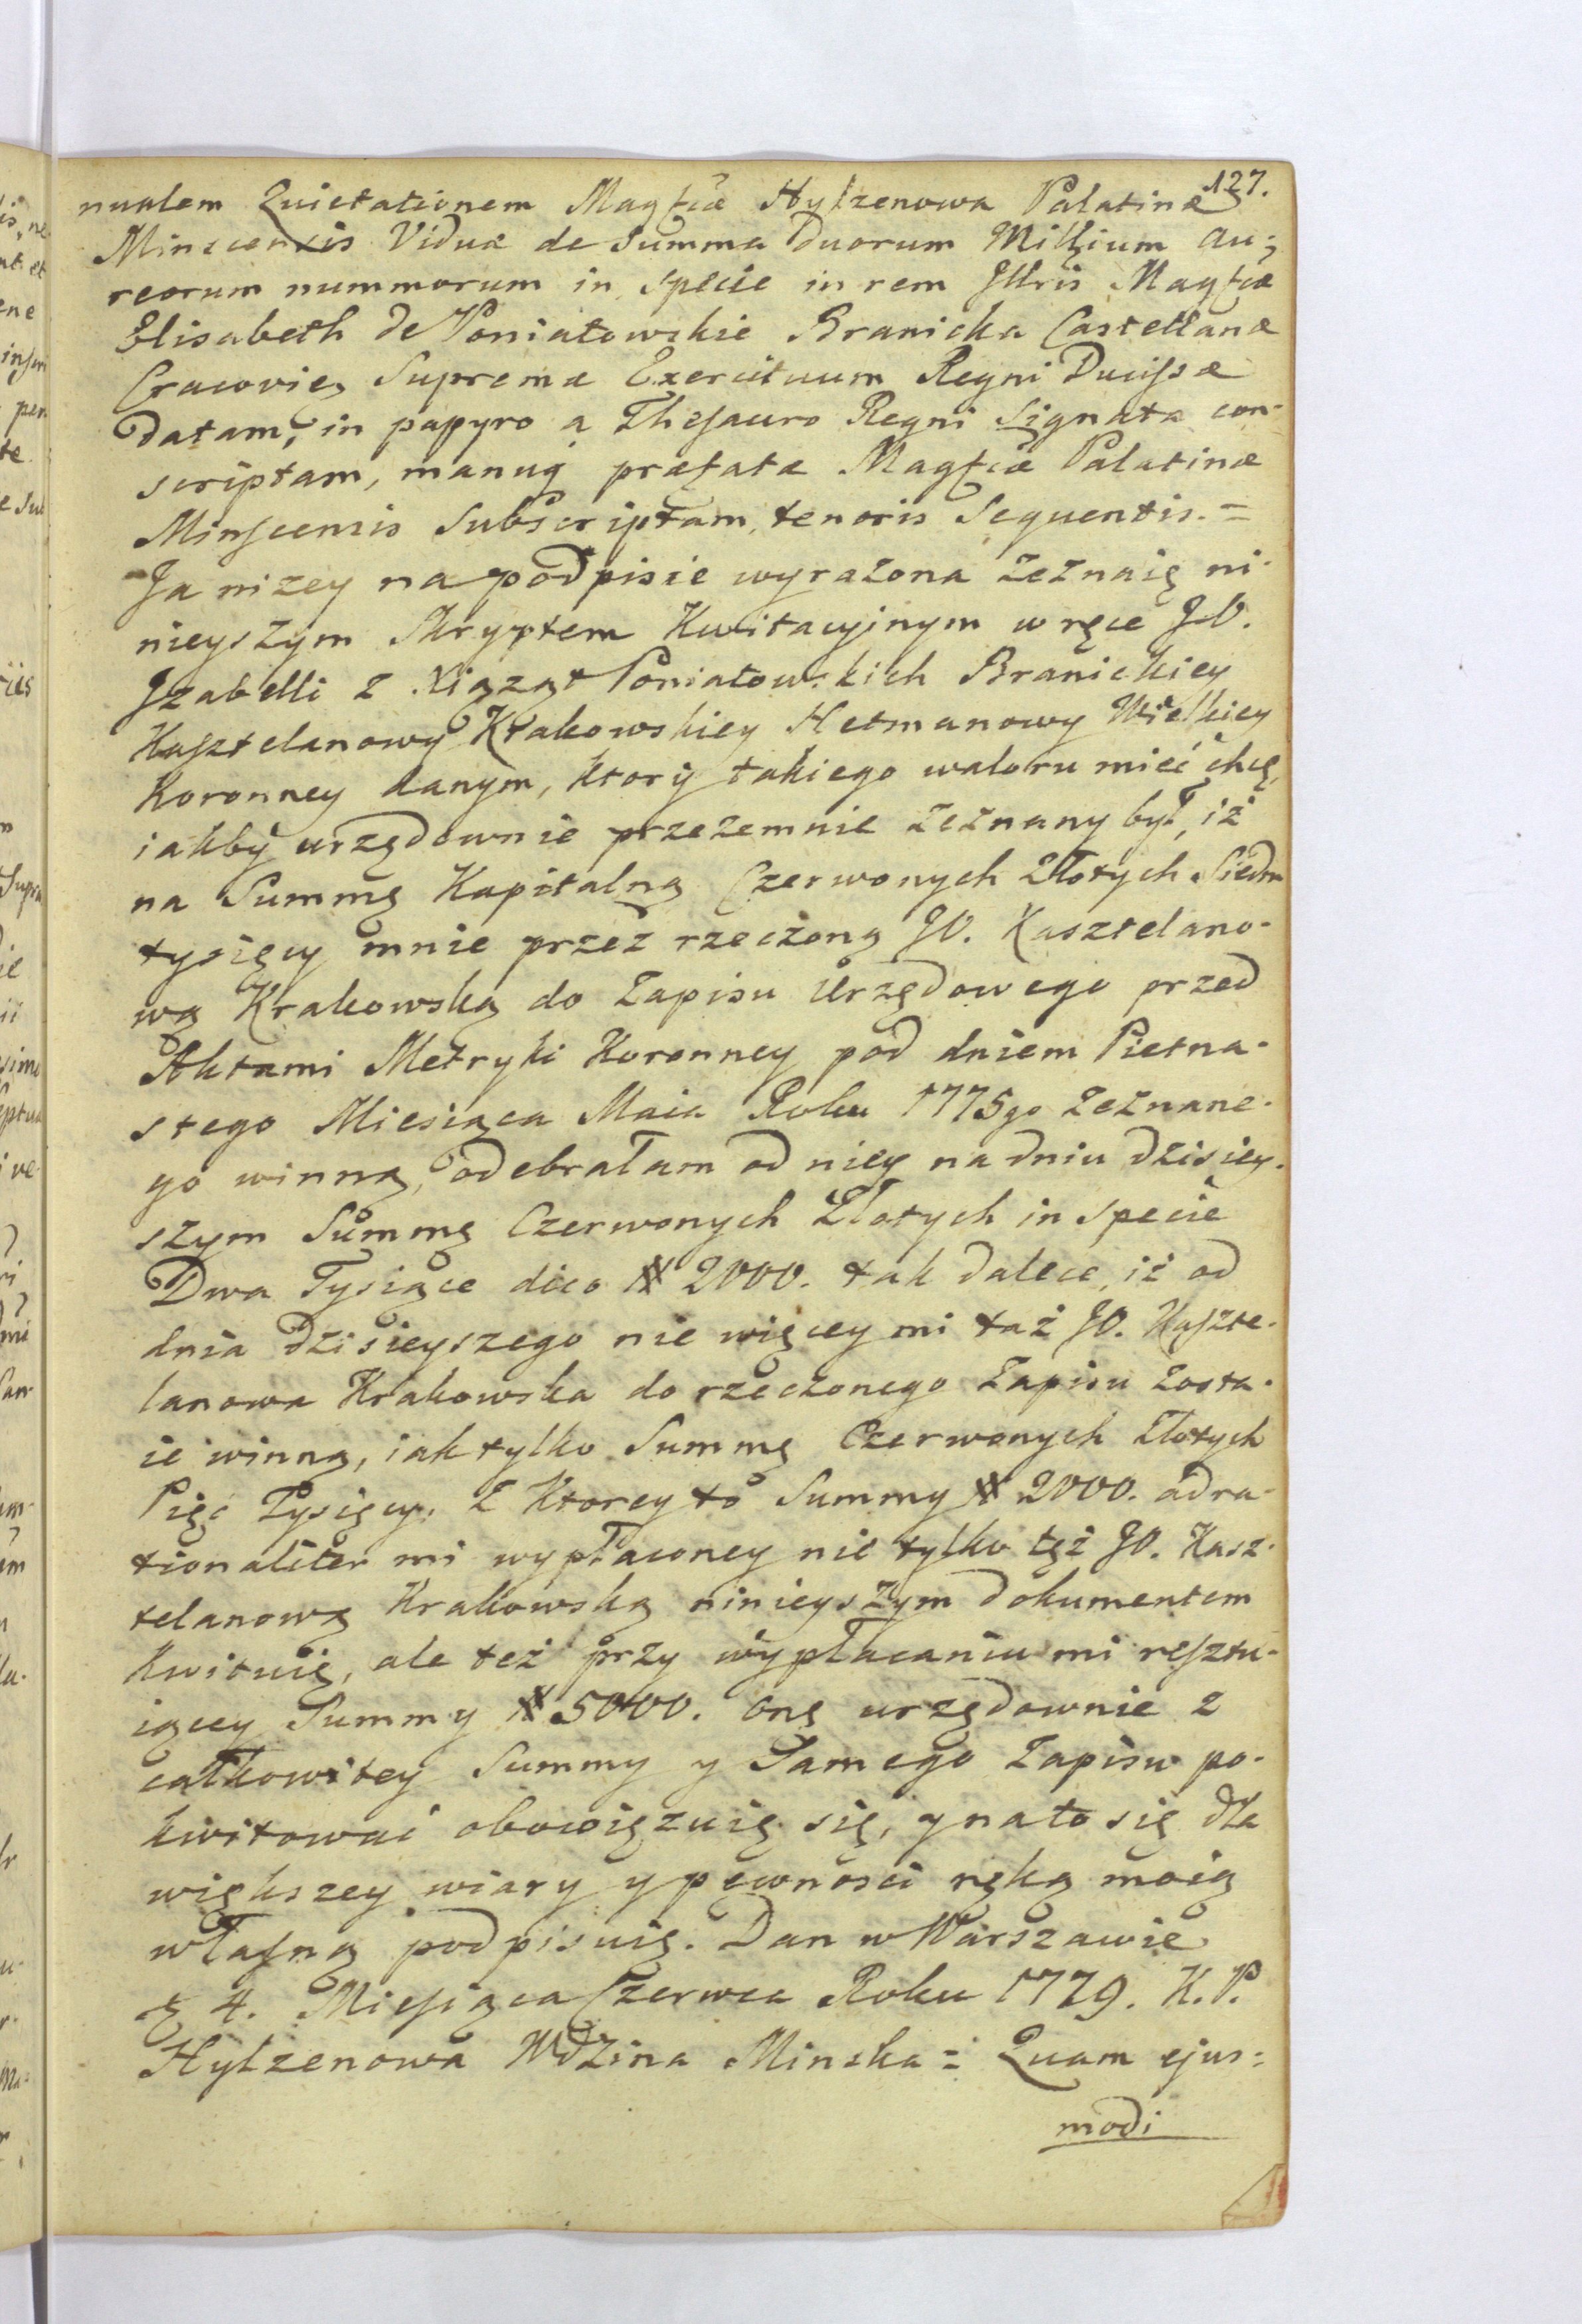 127.
nualem Quietationem Magfcæ Hylzenowa Palatinæ
Minscensis Viduæ de Summa Duorum Millium Au:
reorum nummorum in Specie in rem Illris Magfcæ
Elisabeth de Poniatowskie Branicka Castellanæ
Cracovien Supremæ Exercituum Regni Ducissæ
datam, in papyro a Thesauro Regni Signata con-
scriptam, manuq præfatæ Magfcæ Palatinæ
Minscensis Subscriptam, tenoris Sequentis. =
Ja nizey na podpisie wyrazona zeznaię ni-
nieyszym Skryptem Kwitacyjnym w ręce JO.
Jzabelli z Xiąząt Poniatowskich Branickiey
Kasztelanowy Krakowskiey Hetmanowy Wielkiey
Koronney danym, ktory takiego waloru mieć chcę,
iakby urzędownie przezemnie zeznany był, iż
na Summę Kapitalną Czerwonych Złotych Siedm
tysięcy mnie przez rzeczoną JO. Kasztelano-
wą Krakowską do Zapisu Urzędowego przed
Aktami Metryki Koronney pod dniem Pietna-
stego Miesiąca Maia Roku 1775go zeznane-
go winną, odebrałam od niey na dniu dzisiey-
szym Summę Czerwonych Złotych in Specie
Dwa Tysiące dico # 2000. tak dalece, iż od
dnia dzisieyszego nie więcey mi taż JO. Kaszte-
lanowa Krakowska do rzeczonego Zapisu zosta-
ie winną, iak tylko Summę Czerwonych Złotych
Pięć Tysięcy. Z Ktorey to Summy # 2000. adra-
tionaliter mi wypłaconey nie tylko tęż JO. Kasz-
telanową Krakowską ninieyszym dokumentem
Kwituię, ale też przy wypłacaniu mi resztu-
iącey Summy # 5000. onę urzędownie z
całkowitey Summy y Samego Zapisu po-
kwitować obowięzuię się, y na to się dla
większey wiary y pewności ręką moią
własną podpisuię. Dan w Warszawie
D 4. Miesiąca Czerwca Roku 1779. K. P.
Hylzenowa Wdzina Minska = Quam ejus=
modi